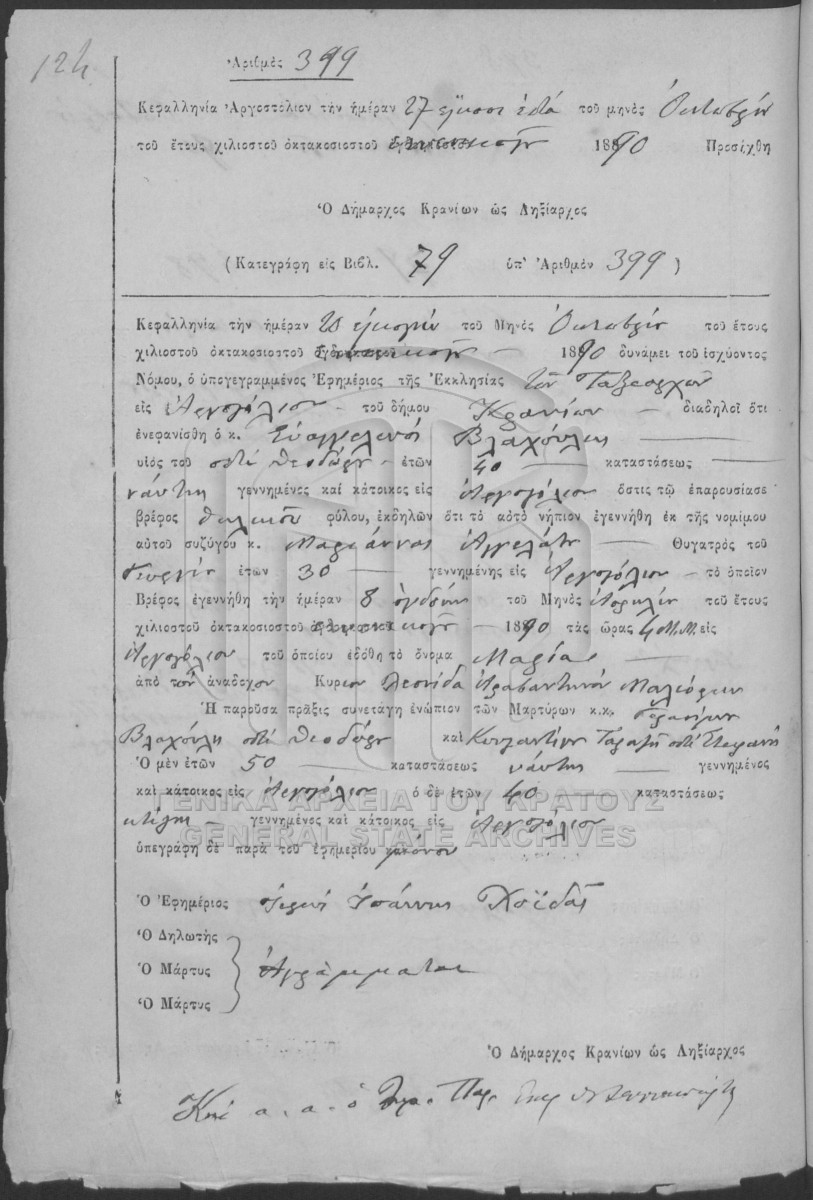 124
Ἀριθμὸς 399
Κεφαλληνία Ἀργοστόλιον τὴν ἡμέραν 27 εἴκοσι ἑπτά τοῦ μηνὸς Ὀκτωβρίου
τοῦ ἔτους χιλιοστοῦ ὀκτακοσιοστοῦ 1890 Προσήχθη
Ὁ Δήμαρχος Κρανίων ὡς Ληξίαρχος
(Κατεγράφη εἰς Βιβλ. 79 ὑπ' Ἀριθμὸν 399)
Κεφαλληνία τὴν ἡμέραν 20 εἰκοστήν τοῦ Μηνὸς Ὀκτωβρίου τοῦ ἔτους
χιλιοστοῦ ὀκτακοσιοστοῦ 1890 δυνάμει τοῦ ἰσχύοντος
Νόμου, ὁ ὑπογεγραμμένος Ἐφημέριος τῆς Ἐκκλησίας τῶν Ταξιαρχῶν
εἰς Ἀργοστόλιον τοῦ δήμου Κρανίων διαδηλοῖ ὅτι
ἐνεφανίσθη ὁ κ. Εὐαγγελινός Βλαχούλης
υἱὸς τοῦ ποτέ Θεοδώρου ἐτῶν 40 καταστάσεως
ναύτης γεννημένος καὶ κάτοικος εἰς Ἀργοστόλιον ὅστις τῷ ἐπαρουσίασε
βρέφος θηλυκοῦ φύλου, ἐκδηλῶν ὅτι τὸ αὐτὸ νήπιον ἐγεννήθη ἐκ τῆς νομίμου
αὐτοῦ συζύγου κ. Μαριάννας Ἀγγελάτου Θυγατρὸς τοῦ
Γεωργίου ἐτῶν 30 γεννημένης εἰς Ἀργοστόλιον τὸ ὁποῖον
Βρέφος ἐγεννήθη τὴν ἡμέραν 8 ὀγδόην τοῦ Μηνὸς Ἀπριλίου τοῦ ἔτους
χιλιοστοῦ ὀκτακοσιοστοῦ 1890 τὰς ὥρας 4 Μ.Μ. εἰς
Ἀργοστόλιον τοῦ ὁποίου ἐδόθη τὸ ὄνομα Μαρία
ἀπὸ τὸν ἀνάδοχον Κύριον Λεονίδα Ἀραβαντινόν
Ἡ παροῦσα πρᾶξις συνετάγη ἐνώπιον τῶν Μαρτύρων κ.κ. Γερασίμου
Βλαχούλη ποτέ Θεοδώρου καὶ Κωνσταντίνου ποτέ
Ὁ μὲν ἐτῶν 50 καταστάσεως ναύτης γεννημένος
καὶ κάτοικος εἰς Ἀργοστόλιον ὁ δὲ ἐτῶν 40 καταστάσεως
γεννημένος καὶ κάτοικος εἰς Ἀργοστόλιον
ὑπεγράφη δὲ παρὰ τοῦ ἐφημερίου μόνον
ΓΕΝΙΚΑ ΑΡΧΕΙΑ ΤΟΥ ΚΡΑΤΟΥΣ
GENERAL STATE ARCHIVES
Ὁ Ἐφημέριος Ἱερεύς Ἰωάννης Χοϊδᾶς
Ὁ Δηλωτής
Ὁ Μάρτυς Ἀγράμματοι
Ὁ Μάρτυς
Ὁ Δήμαρχος Κρανίων ὡς Ληξίαρχος